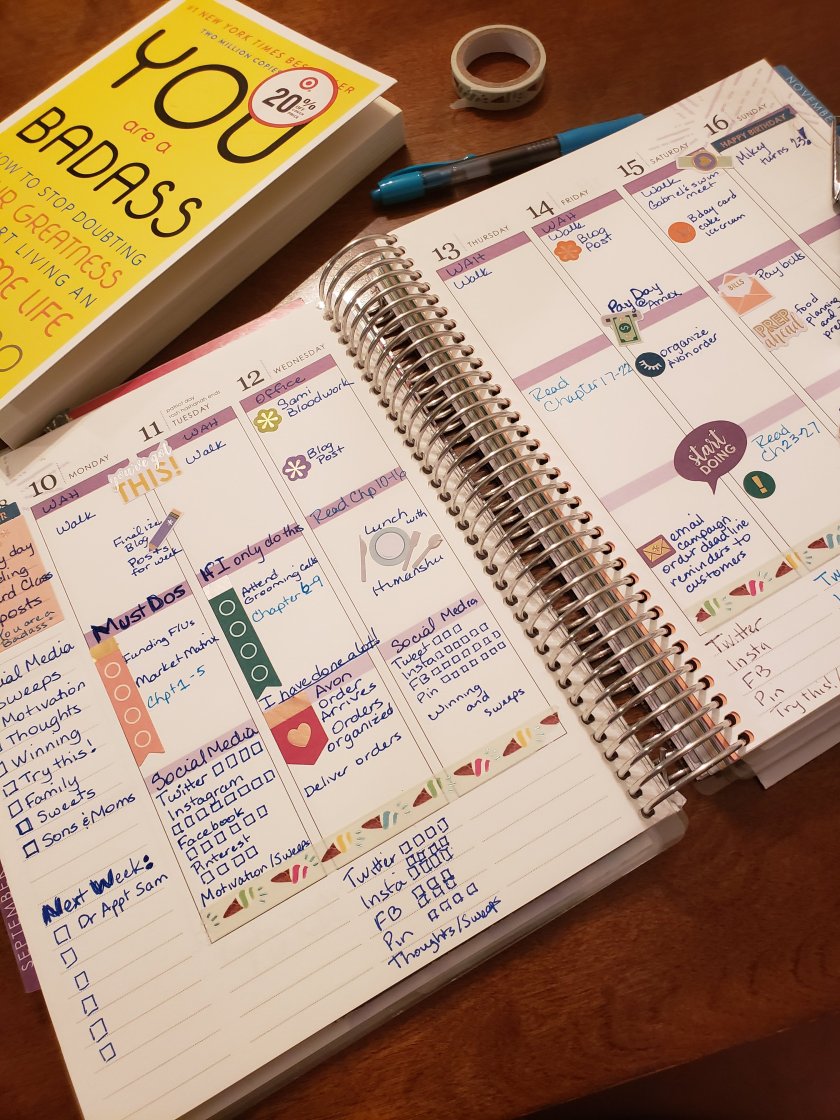 #1 NEW YORK TIMES BESTSELLER
TWO MILLION COPIES
YOU
20%
are a
BADASS
HOW TO STOP DOUBTING
YOUR GREATNESS
START LIVING AN
AWESOME LIFE
10
MONDAY
WAH
Walk
Must Dos
Funding F/Us
Market Matrix
Chpt 1-5
Social Media
Twitter
Instagram
Facebook
Pinterest
Motivation/Sweeps
11
TUESDAY
WAH
you've got
THIS!
Walk
Finalize
Blog
Posts
for week
If I only do this
Attend
Grooming Calls
Chapter 6-9
I have done alot!
Avon
Order
Arrives
Orders
organized
Deliver orders
12
WEDNESDAY
OFFICE
Sami
Bloodwork
Blog
Post
Read Chp 10-16
Lunch with
Humanshu
Social Media
Tweet
Insta
FB
Pin
Winning
and
Sweeps
Twitter
Insta
FB
Pin
Thoughts/Sweeps
posts
You are a
Badass
Social Media
Sweeps
Motivation
Thoughts
Winning
Try this!
Family
Sweets
Sons & Moms
Next Week:
Dr Appt Sam
SEPTEMBER
13
THURSDAY
WAH
Walk
Read
Chapter 17-22
14
FRIDAY
WAH
Walk
Blog
Post
Pay Day
@ Amex
organize
Avon order
start
DOING
email
campaign
order deadline
reminders to
customers
15
SATURDAY
Walk
Gabriel's swim
meet
Bday card
cake
ice cream
BILLS
Pay bills
PREP
ahead
food
planning
and
Read
Ch 23-27
16
SUNDAY
HAPPY BIRTHDAY
Mikey
turns 23!
Twitter
Insta
FB
Pin
Try this!
NOVEMBER